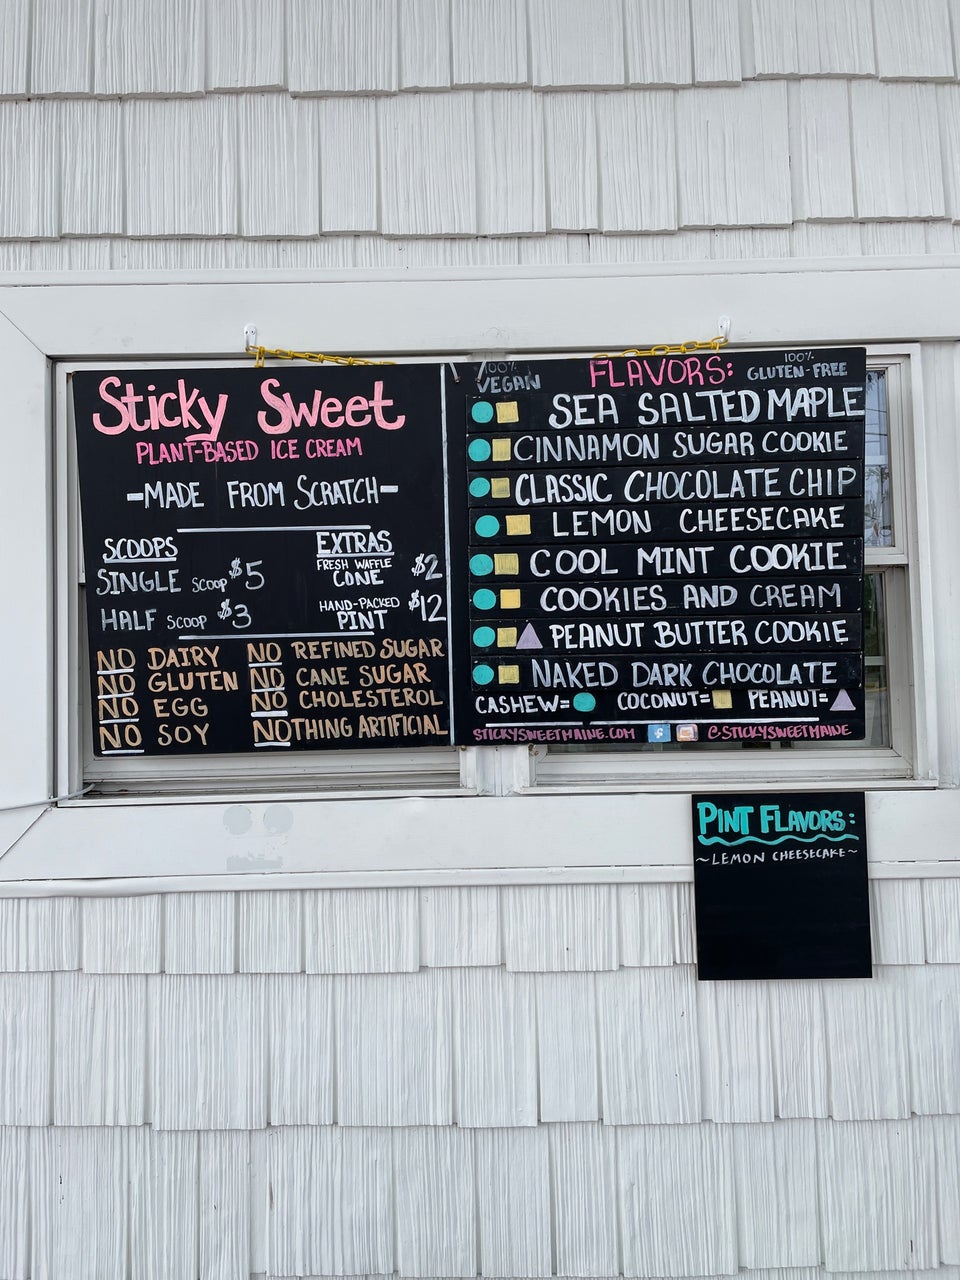 Sticky Sweet
PLANT-BASED ICE CREAM
-MADE FROM SCRATCH-
SCOOPS
SINGLE SCOOP $5
HALF SCOOP $3
EXTRAS
FRESH WAFFLE
CONE $2
HAND-PACKED
PINT $12
NO DAIRY
NO GLUTEN
NO EGG
NO SOY
NO REFINED SUGAR
NO CANE SUGAR
NO CHOLESTEROL
NOTHING ARTIFICIAL
100%
VEGAN
FLAVORS:
100%
GLUTEN-FREE
SEA SALTED MAPLE
CINNAMON SUGAR COOKIE
CLASSIC CHOCOLATE CHIP
LEMON CHEESECAKE
COOL MINT COOKIE
COOKIES AND CREAM
PEANUT BUTTER COOKIE
NAKED DARK CHOCOLATE
CASHEW= COCONUT= PEANUT=
STICKYSWEETMAINE.COM f @STICKYSWEETMAINE
PINT FLAVORS:
~LEMON CHEESECAKE~